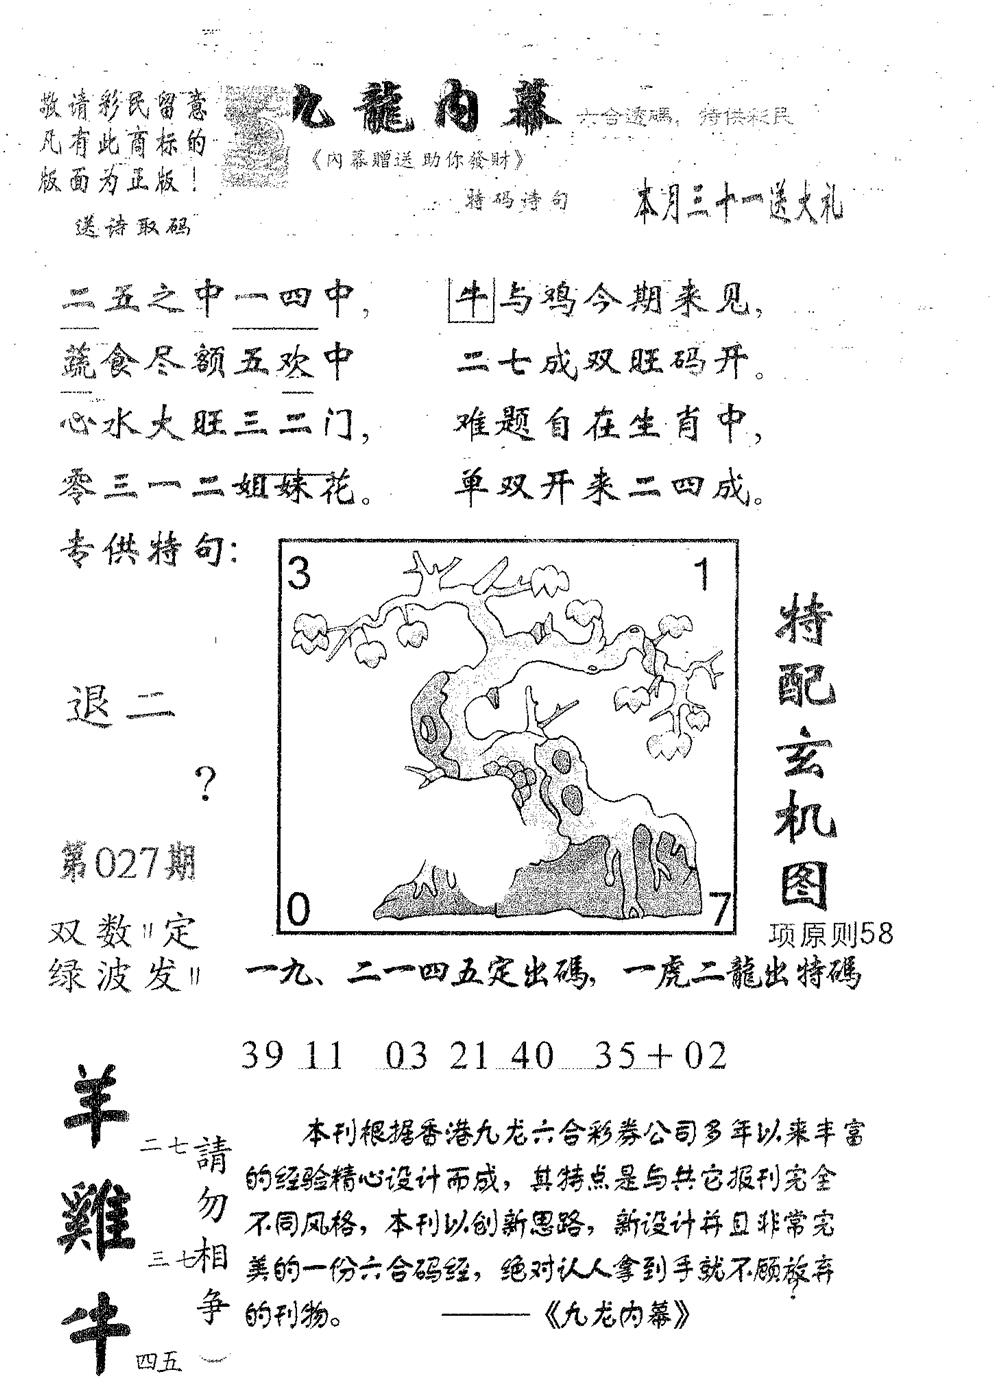 敬请彩民留意
凡有此商标的
版面为正版！
送诗取码
九龍內幕
六合透碼，特供彩民
《内幕贈送助你發財》
特码诗句
本月三十一送大礼
二五之中一四中，
蔬食尽额五欢中
心水大旺三二门，
零三一二姐妹花。
牛与鸡今期来见，
二七成双旺码开。
难题自在生肖中，
单双开来二四成。
专供特句：
退二
？
第027期
双数〃定
绿波发〃
3
1
0
7
特配玄机图
项原则58
一九、二一四五定出碼，一虎二龍出特碼
39 11 03 21 40 35＋02
羊
二七
雞
三七
牛
四五
請勿相争
本刊根据香港九龙六合彩券公司多年以来丰富
的经验精心设计而成，其特点是与其它报刊完全
不同风格，本刊以创新思路，新设计并且非常完
美的一份六合码经，绝对认人拿到手就不顾放弃
的刊物。 ——《九龙内幕》
？